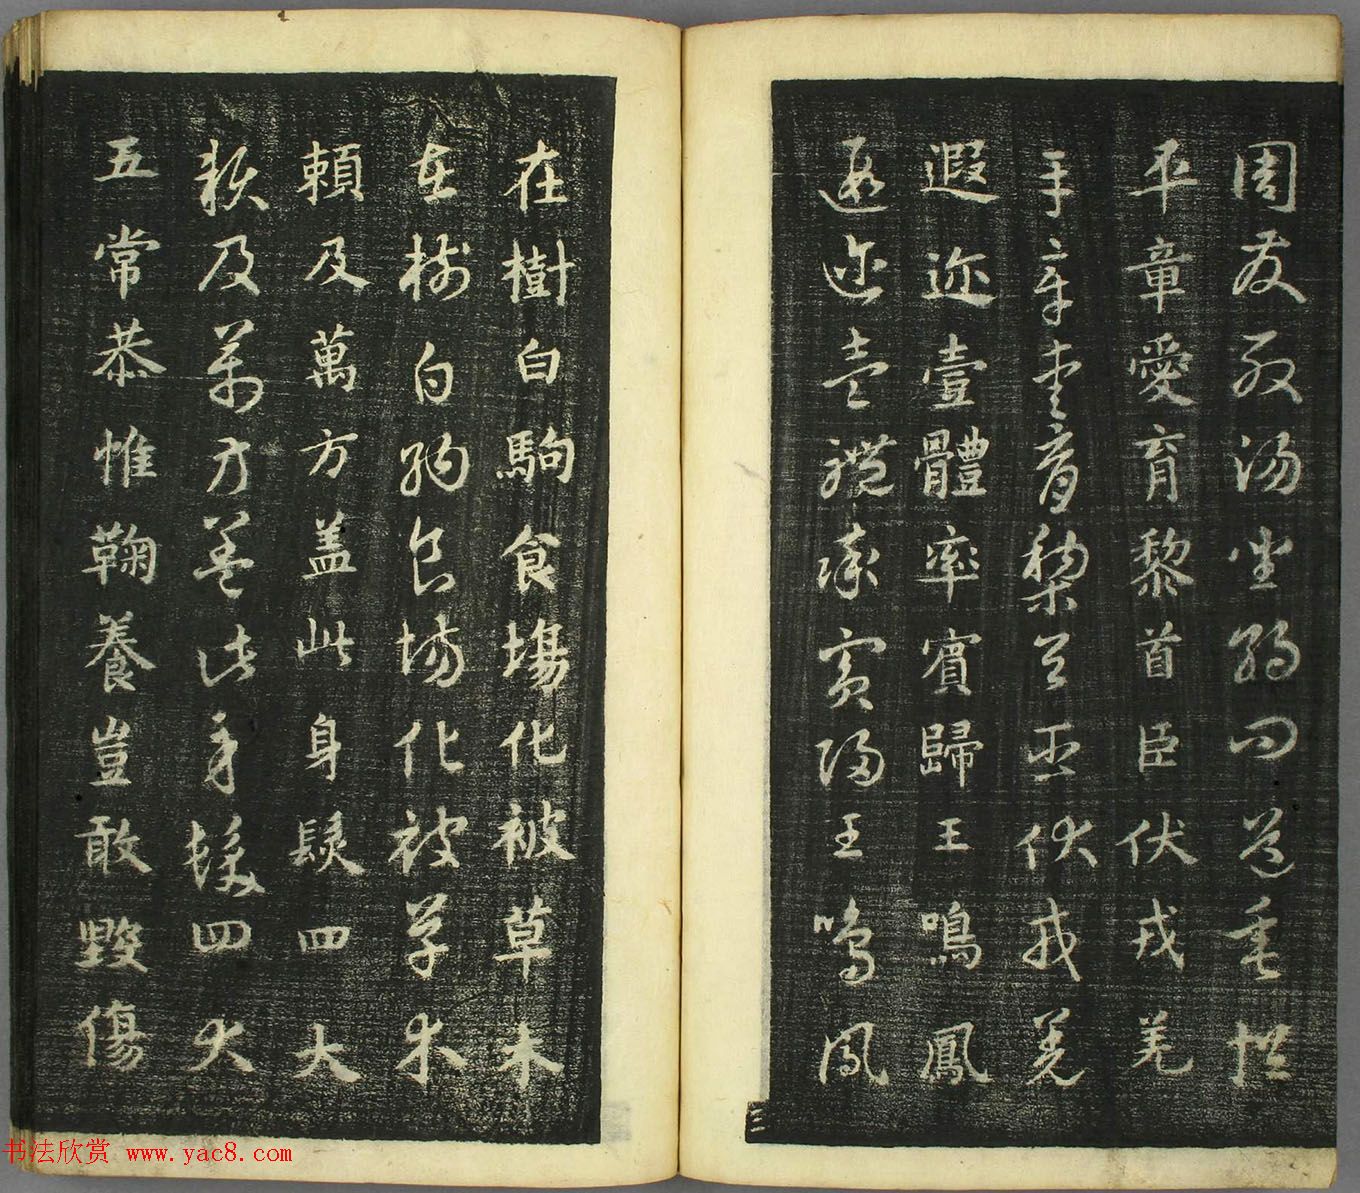 周發殷湯坐朝問道垂拱
平章愛育黎首臣伏戎羌
平章愛育黎首臣伏戎羌
遐迩壹體率賓歸王鳴鳳
遐迩壹體率賓歸王鳴鳳
三
在樹白駒食塲化被草木
在樹白駒食場化被草木
頼及萬方盖此身髮四大
頼及萬方盖此身髮四大
五常恭惟鞠養豈敢毀傷
书法欣赏 www.yac8.com